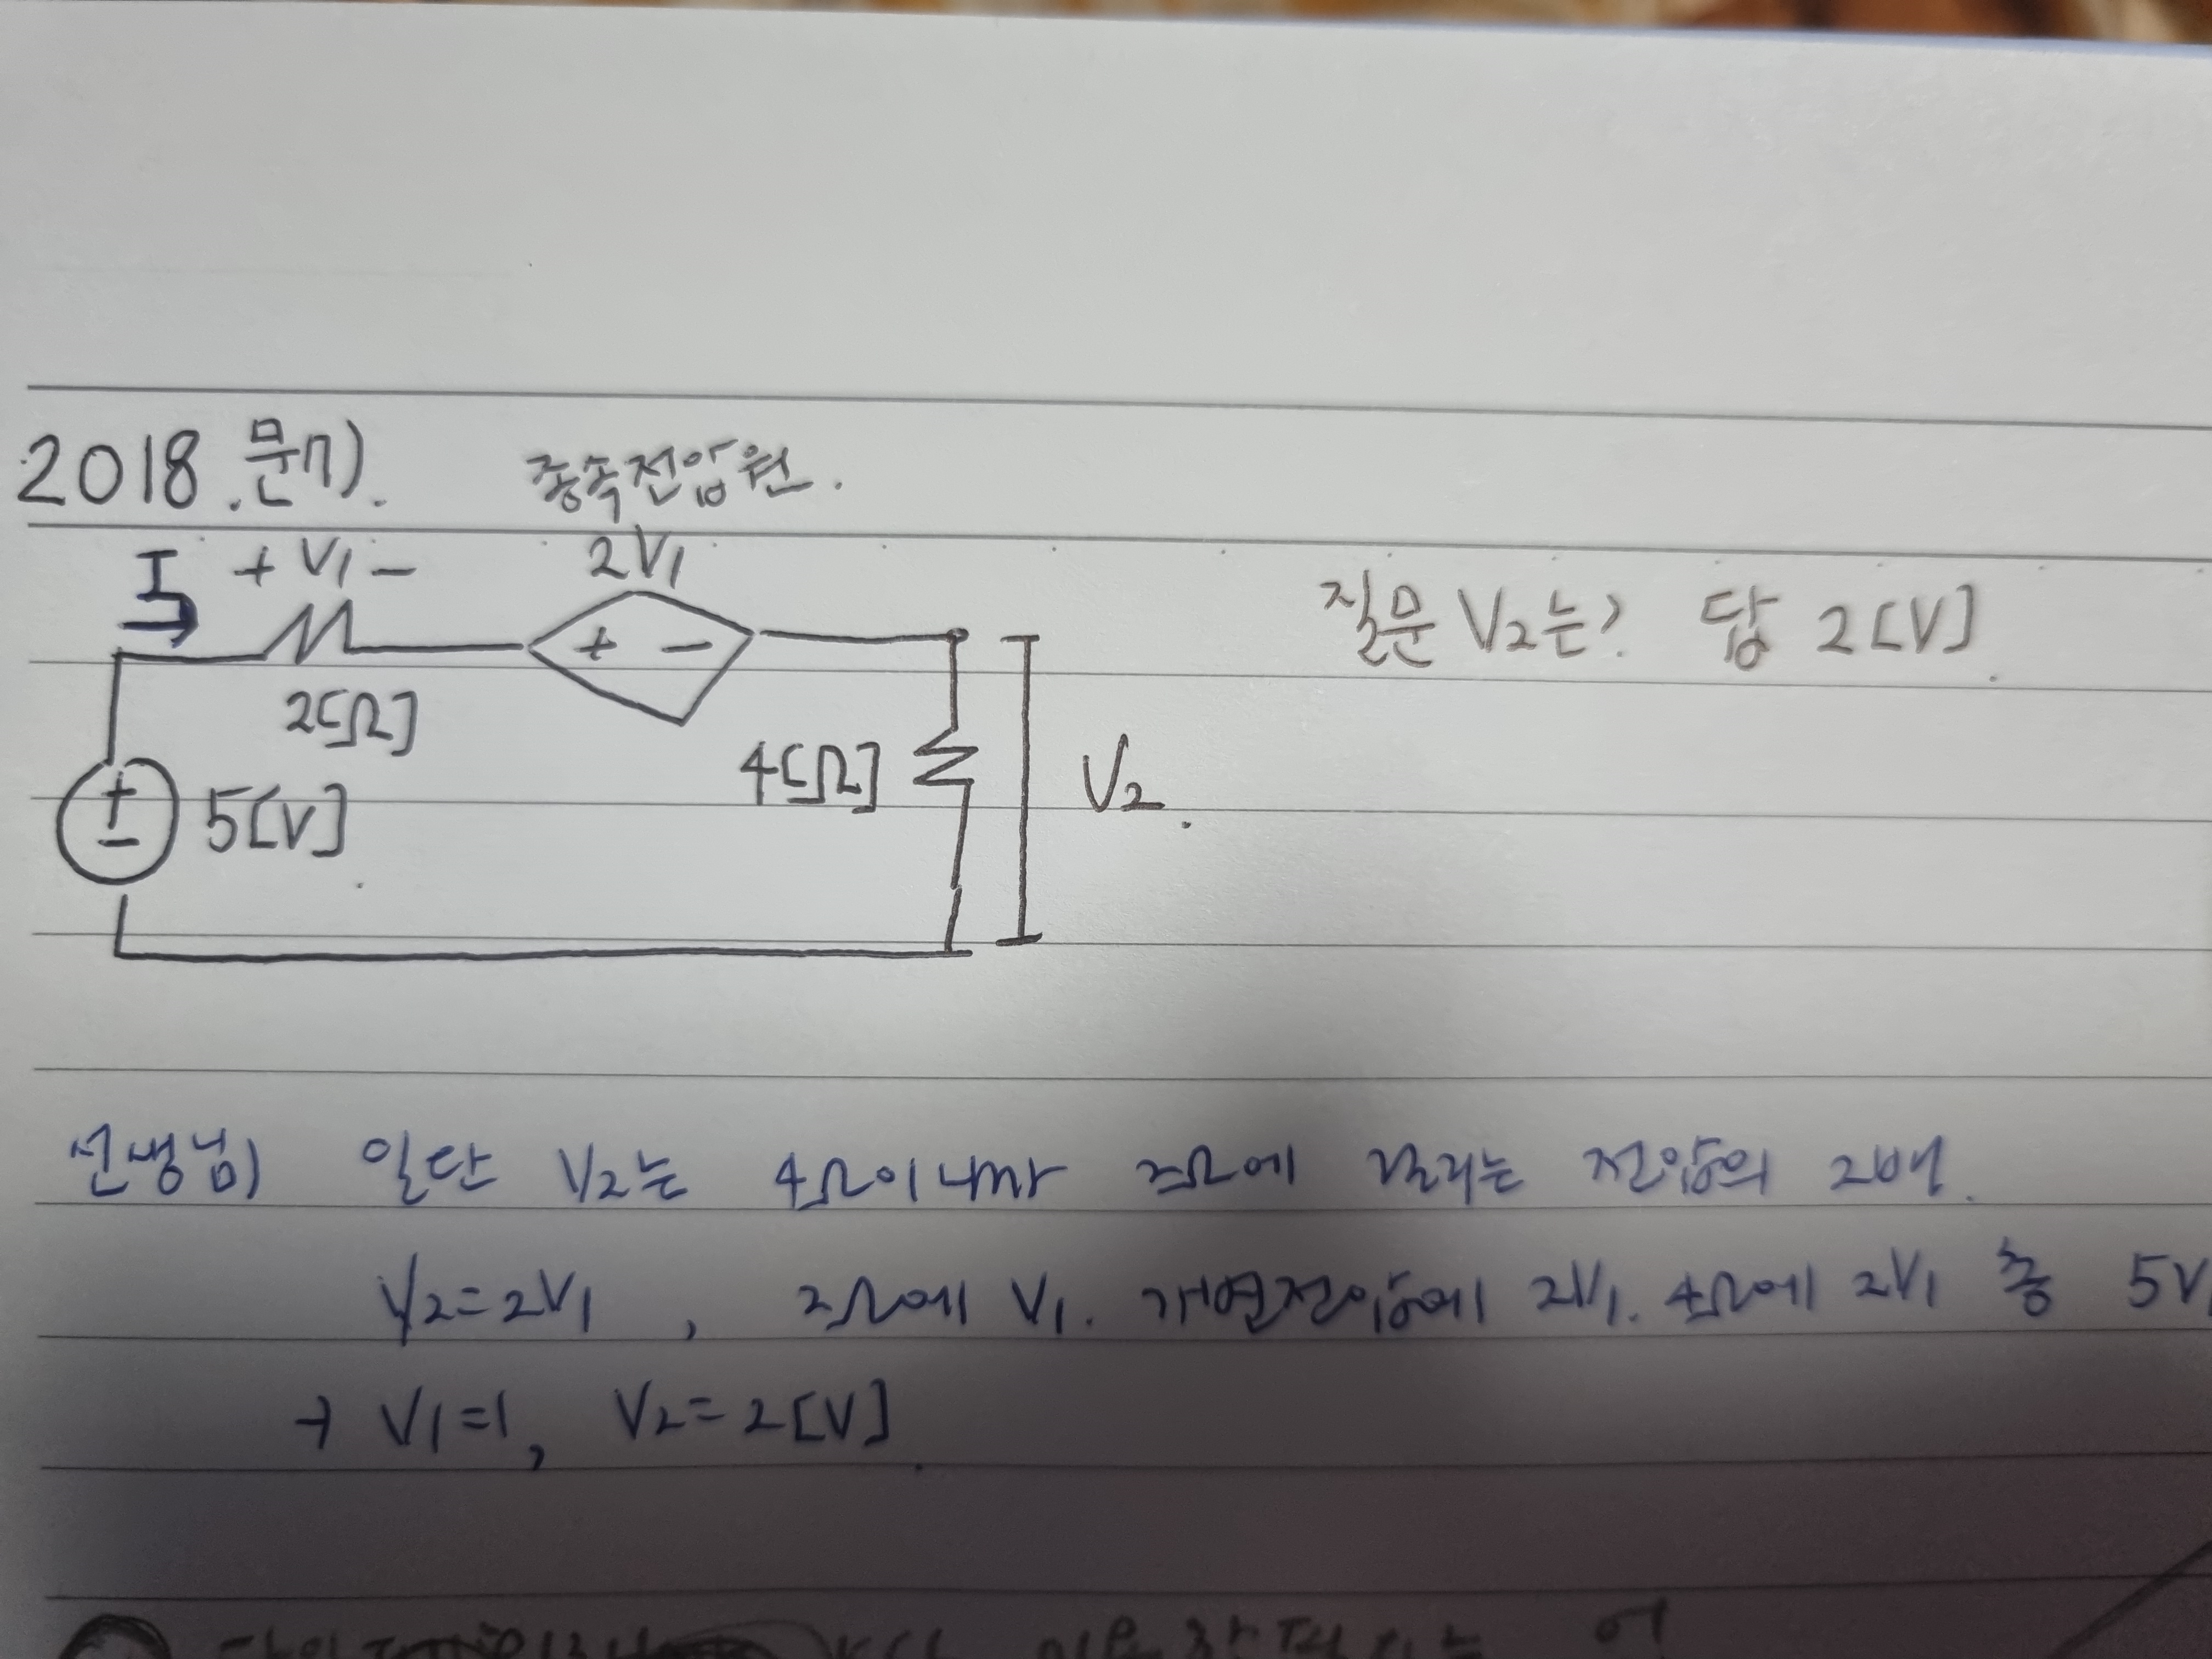 2018. 문7).
종속전압원.
I + V1 - 2V1
+ -
질문 V2는? 답 2[V].
2[Ω]
4[Ω] V2.
+ - 5[V]
선생님) 일단 V2는 4Ω이니까 2Ω에 걸리는 전압의 2배.
V2=2V1, 2Ω에 V1. 개변전압에 2V1. 4Ω에 2V1 총 5V
→ V1=1, V2=2[V]